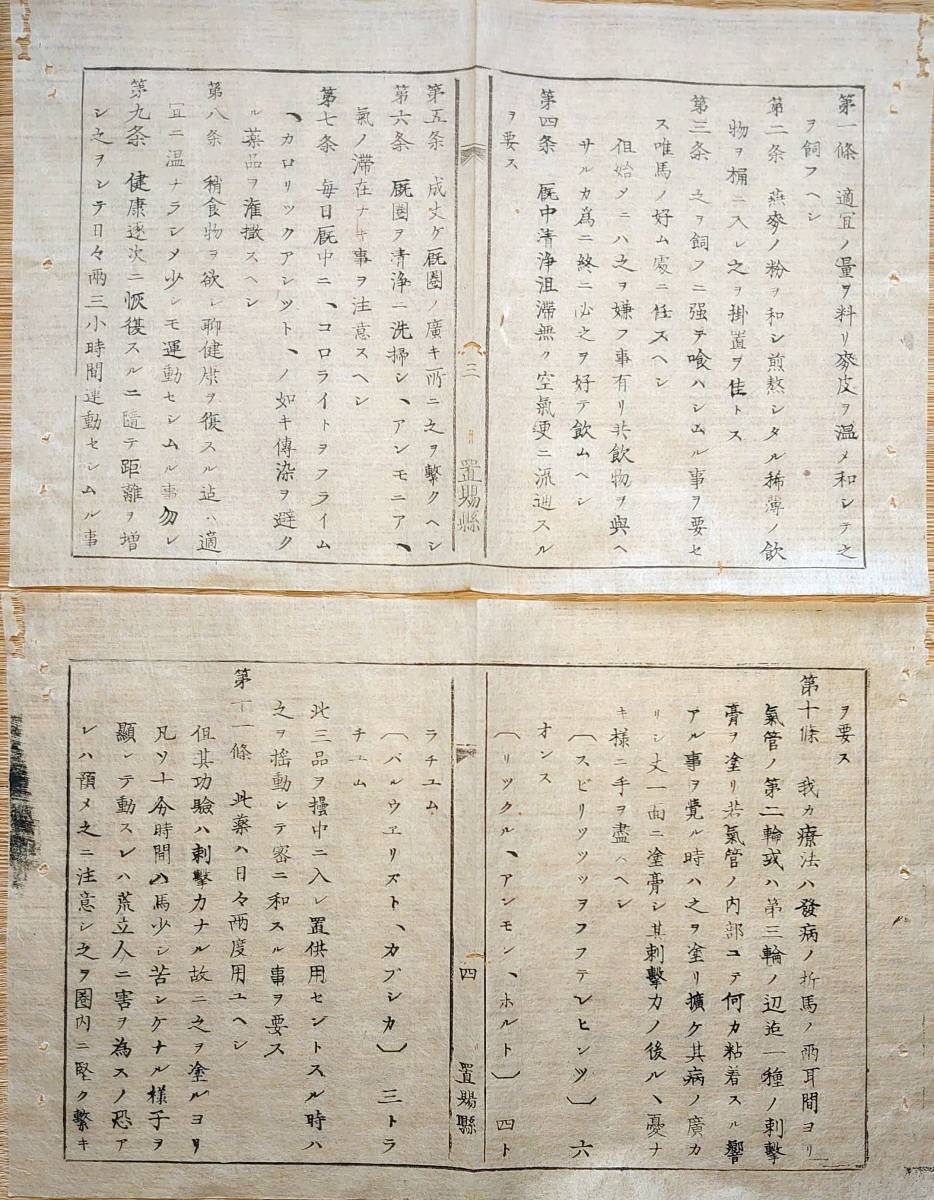 第一條　適宜ノ量ヲ料リ麥皮ヲ温メ和シテ之
ヲ飼フヘシ
第二条　燕麥ノ粉ヲ和シ煎熬シタル稀薄ノ飲
物ヲ桶ニ入レ之ヲ掛置ヲ佳トス
第三条　之ヲ飼フニ强テ喰ハシムル事ヲ要セ
ス唯馬ノ好ム處ニ任スヘシ
但始メニハ之ヲ嫌フ事有リ共飲物ヲ與ヘ
サルカ爲ニ終ニ必之ヲ好テ飲ムヘシ
第四条　厩中清浄沮滞無ク空氣更ニ流通スル
ヲ要ス
三
置賜縣
第五条　成丈ケ厩圏ノ廣キ所ニ之ヲ繫クヘシ
第六条　厩圏ヲ清浄ニ洗掃シ、アンモニア、
氣ノ滞在ナキ事ヲ注意スヘシ
第七条　毎日厩中ニ、コロライトヲフライム
、カロリックアシット、ノ如キ傳染ヲ避ク
ル薬品ヲ潅撒スヘシ
第八条　稍食物ヲ欲シ聊健康ヲ復スル迠ハ適
宜ニ温ナラシメ少シモ運動セシムル事勿レ
第九条　健康逐次ニ恢復スルニ隨テ距離ヲ増
シ之ヲシテ日々兩三小時間運動セシムル事
ヲ要ス
第十條　我カ療法ハ發病ノ折馬ノ兩耳間ヨリ
氣管ノ第二輪或ハ第三輪ノ辺迠一種ノ刺擊
膏ヲ塗リ若氣管ノ内部ニテ何カ粘着スル響
アル事ヲ覺ル時ハ之ヲ塗リ擴ケ其病ノ廣カ
リシ丈一面ニ塗膏シ其刺擊力ノ後ル、憂ナ
キ様ニ手ヲ盡ヘシ
〔スピリツツヲフテレヒンツ〕　六
オンス
〔リックル、アンモン、ホルト〕　四ト
四
置賜縣
ラチユム
〔バルウエリスト、カブシカ〕　三トラ
チユム
此三品ヲ壜中ニ入レ置供用セントスル時ハ
之ヲ揺動シテ密ニ和スル事ヲ要ス
第十一條　此薬ハ日々兩度用ユヘシ
但其功驗ハ刺擊力ナル故ニ之ヲ塗ルヨリ
凡ソ十分時間ハ馬少シ苦シケナル様子ヲ
顯シテ動スレハ荒立人ニ害ヲ為スノ恐ア
レハ預メ之ニ注意シ之ヲ圏内ニ堅ク繫キ